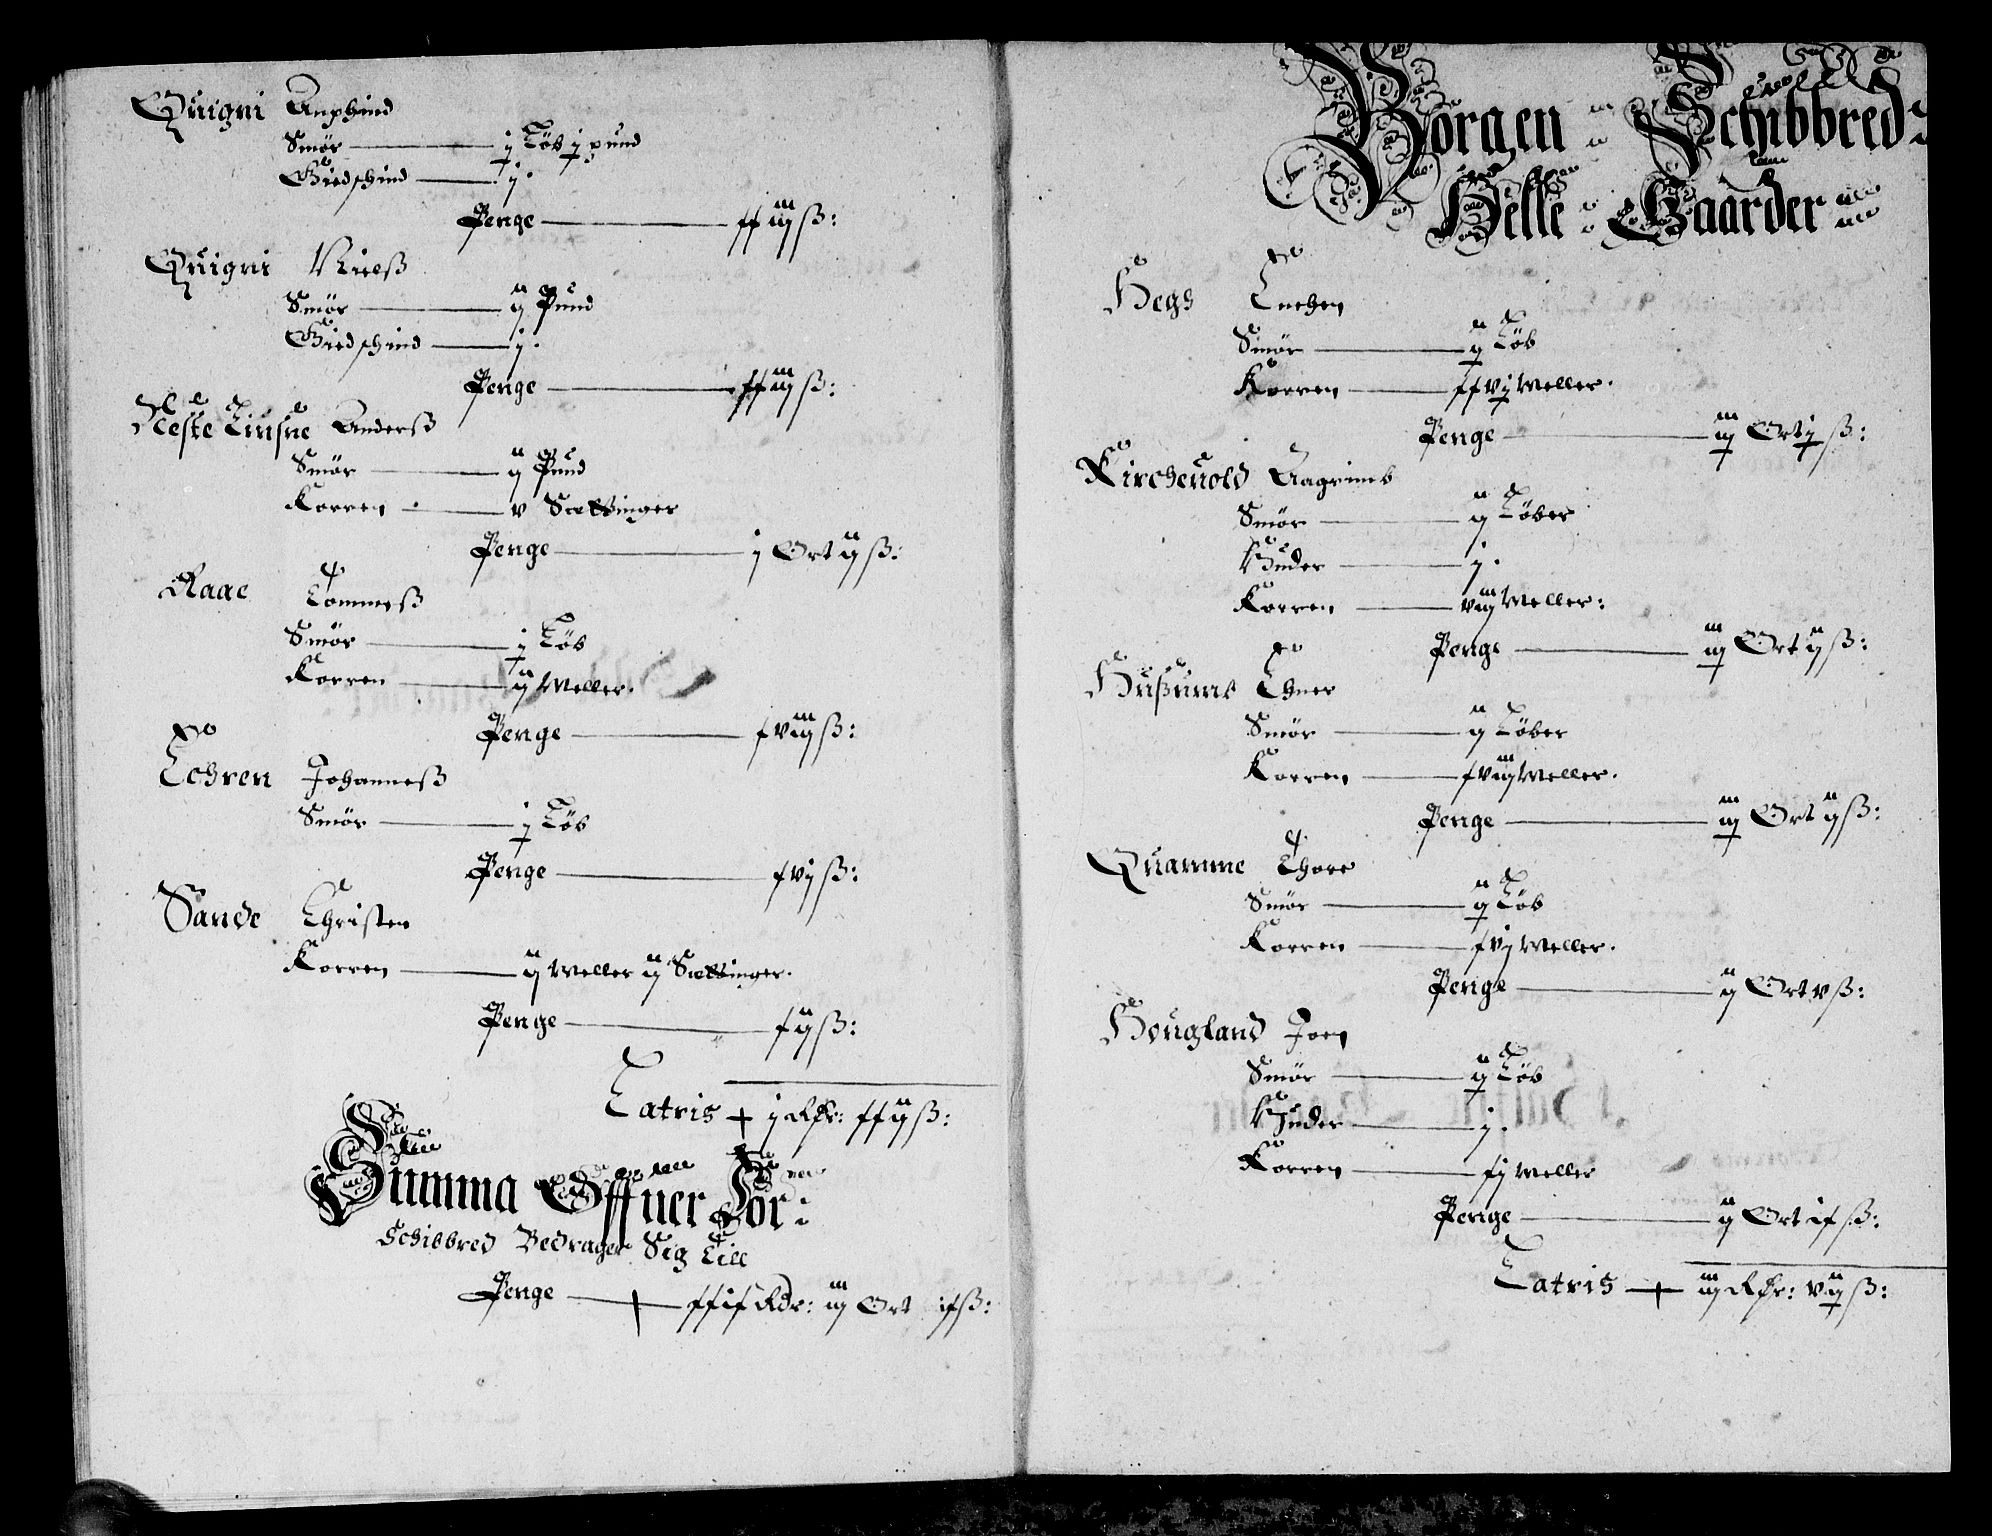 Quigni Anphind
Smör — j Löb j pund
Giedschind — j.
Penge — xx iiij ß:
Quigni Nielß
Smör — ij Pund
Giedschind — j.
Penge — xx iiij ß:
Neste Liusne Anderß
Smör — ij Pund
Korren — v Sættinger
Penge — j Ort ij ß:
Raae Tommeß
Smör — j Löb
Korren — ij Meller.
Penge — xviij ß:
Lohren Johanneß
Smör — j Löb
Penge — xvj ß:
Sande Christen
Korren — ij Meller ij Sættinger.
Penge — xij ß:
Latris + j Rdr: xxij ß:
Summa Offuer For:
Schibbred Bedrager Sig Till
Penge — xxix Rdr: iij Ort ix ß:
Borgen Schibbred:
Helle Gaarder
Hegh
Smör — ij Löb
Korren — xxvj Meller.
Penge — iij Ort j ß:
Kircheuold Aagrimb
Smör — ij Löber
Huder — j.
Korren — viij Meller:
Penge — iij Ort ij ß:
Hußumb Ehner
Smör — ij Löber
Korren — xviij Meller.
Penge — iij Ort ij ß:
Quamme Thore
Smör — ij Löb
Korren — xvj Meller.
Penge — ij Ort v ß:
Hougland Joen
Smör — ij Löb
Huder — j.
Korren — xj Meller
Penge — ij Ort ix ß:
Latris + iij Rdr: vij ß: